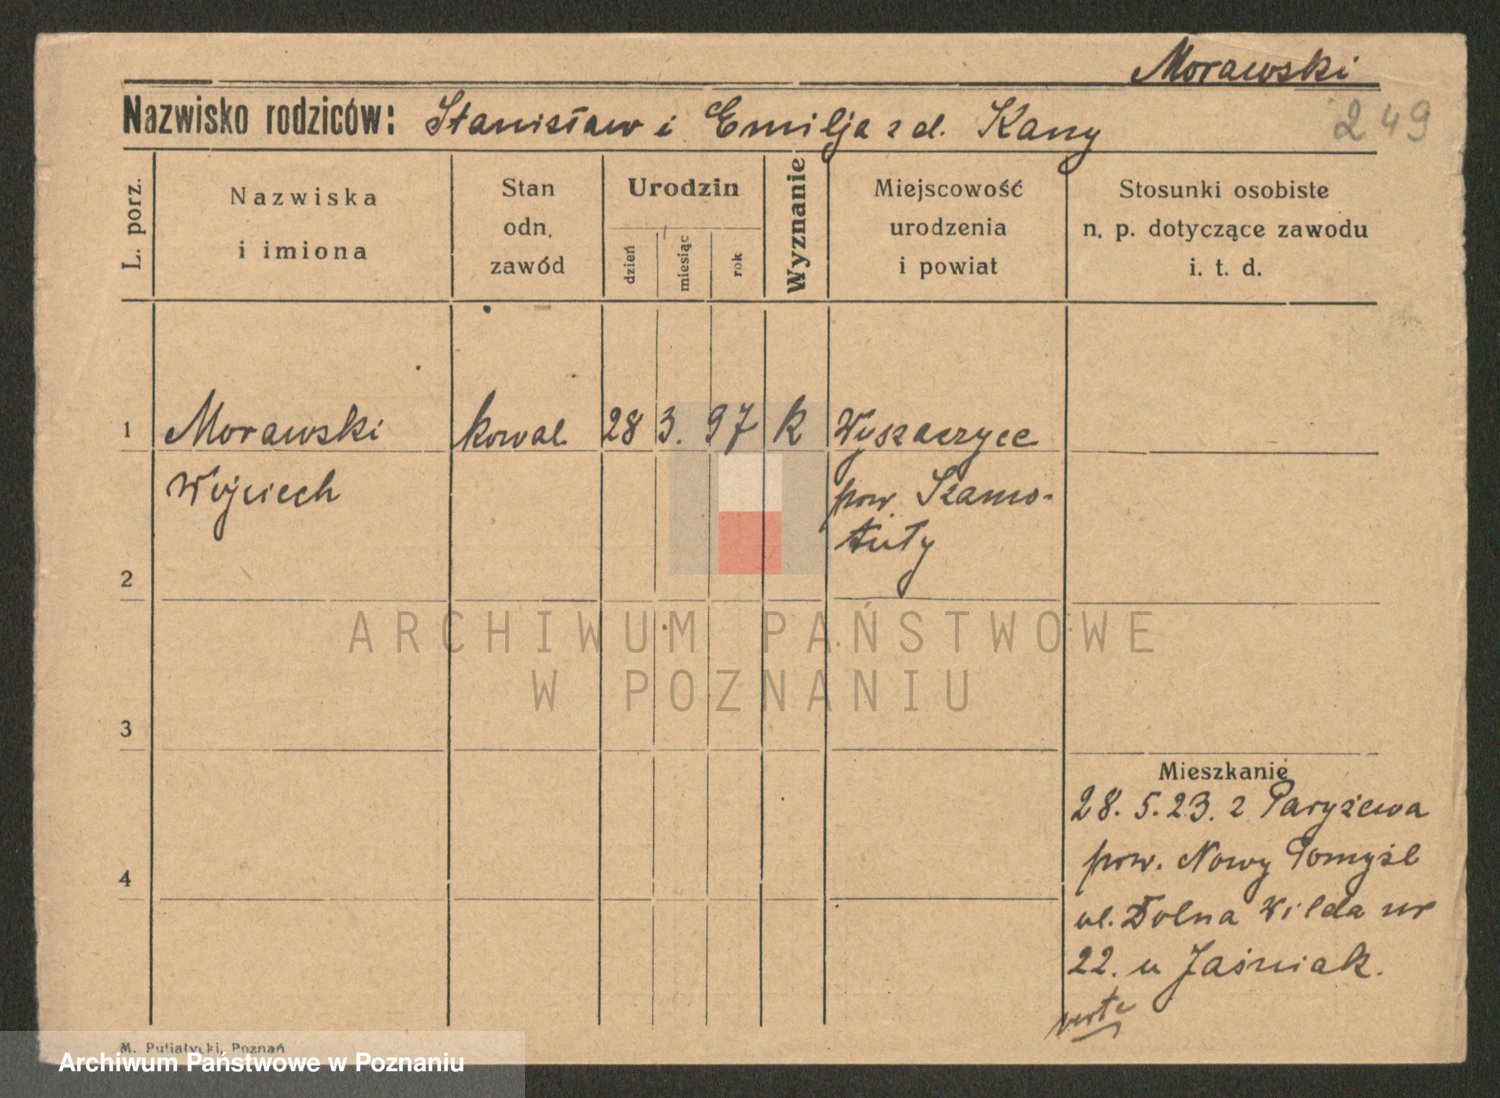 Morawski
Nazwisko rodziców: Stanisław i Emilja z d. Kany
249
L. porz.
Nazwiska
i imiona
Stan
odn.
zawód
Urodzin
dzień
miesiąc
rok
Wyznanie
Miejscowość
urodzenia
i powiat
Stosunki osobiste
n. p. dotyczące zawodu
i. t. d.
1 Morawski kowal 28 3. 97 k Wyszaczyce
Wojciech pow. Szamo-
tuły
2
ARCHIWUM PAŃSTWOWE
W POZNANIU
3
Mieszkanie
28. 5. 23. z Paryżewa
pow. Nowy Tomyśl
4
ul. Dolna Wilda nr
22. u Jaśniak.
verte
M. Putiatycki, Poznań
Archiwum Państwowe w Poznaniu